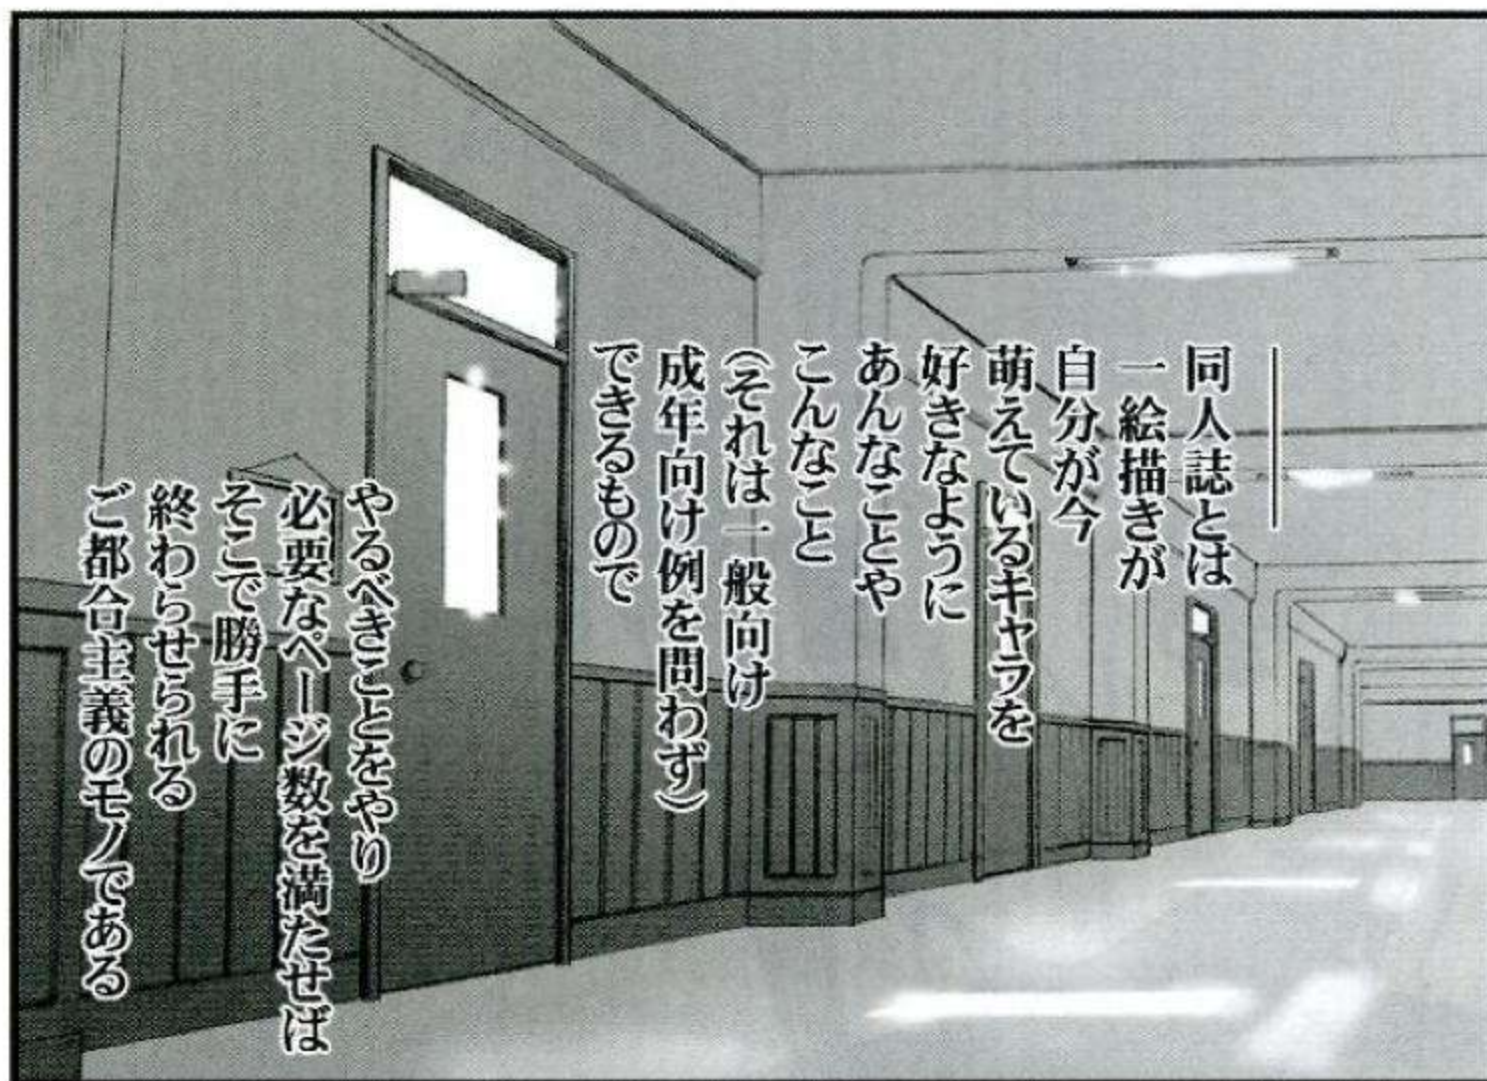 同人誌とは
一絵描きが
自分が今
萌えているキャラを
好きなように
あんなことや
こんなこと
(それは一般向け
成年向け例を問わず)
できるもので
やるべきことをやり
必要なページ数を満たせば
そこで勝手に
終わらせられる
ご都合主義のモノである